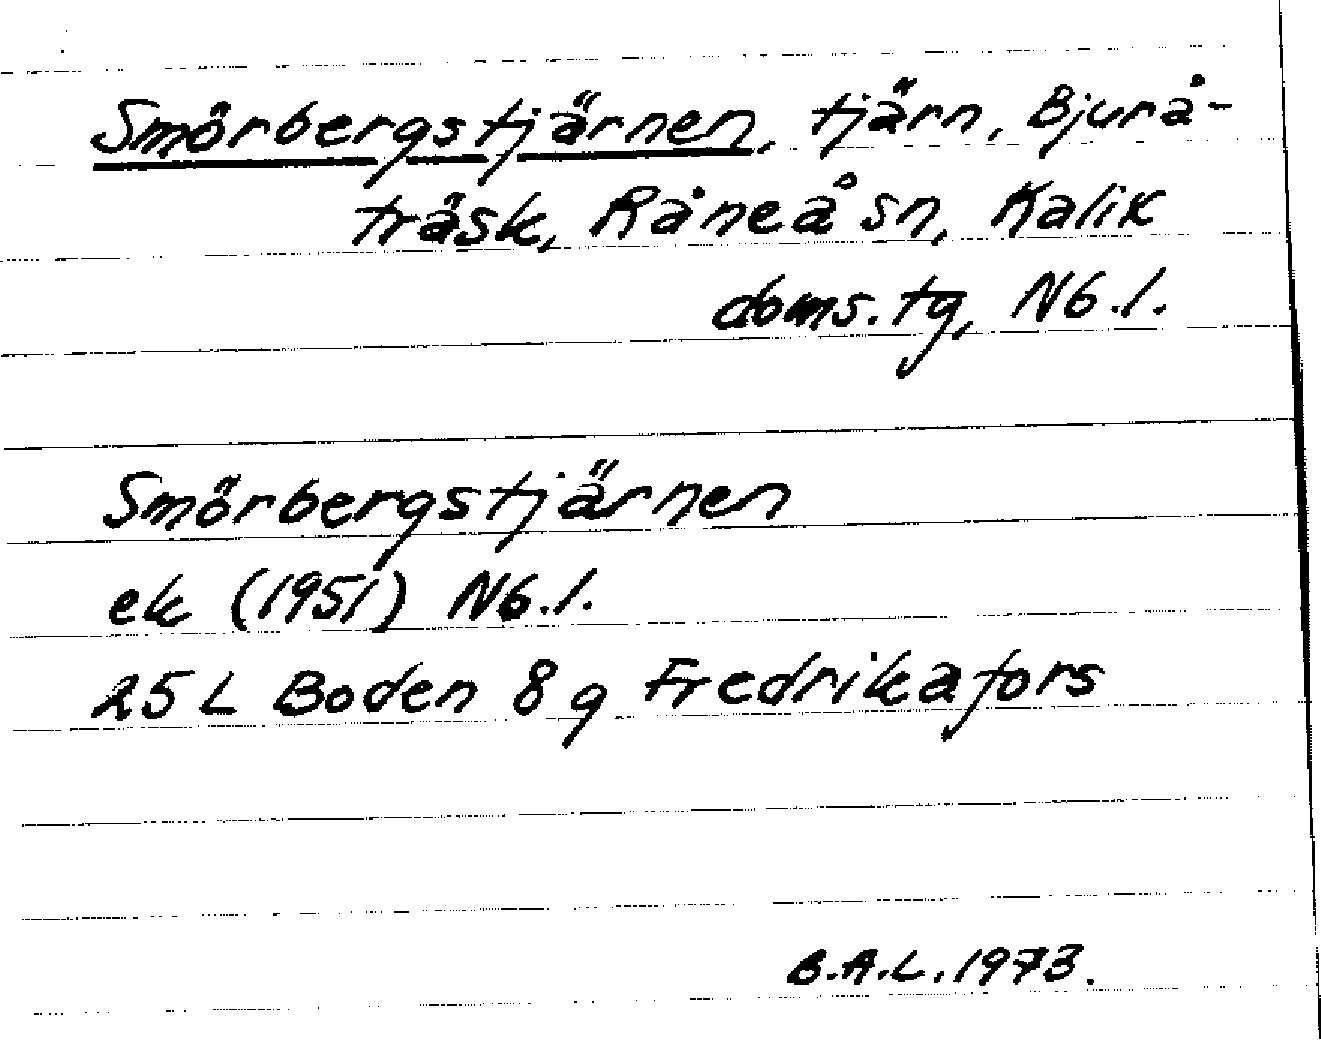 Smörbergstjärnen, tjärn, Bjurå-
träsk, Råneå sn, Kalix
doms.tg, Nb.l.
Smörbergstjärnen
ek (1951) Nb.l.
25 L Boden 8g Fredrikafors
B.A.L. 1973.